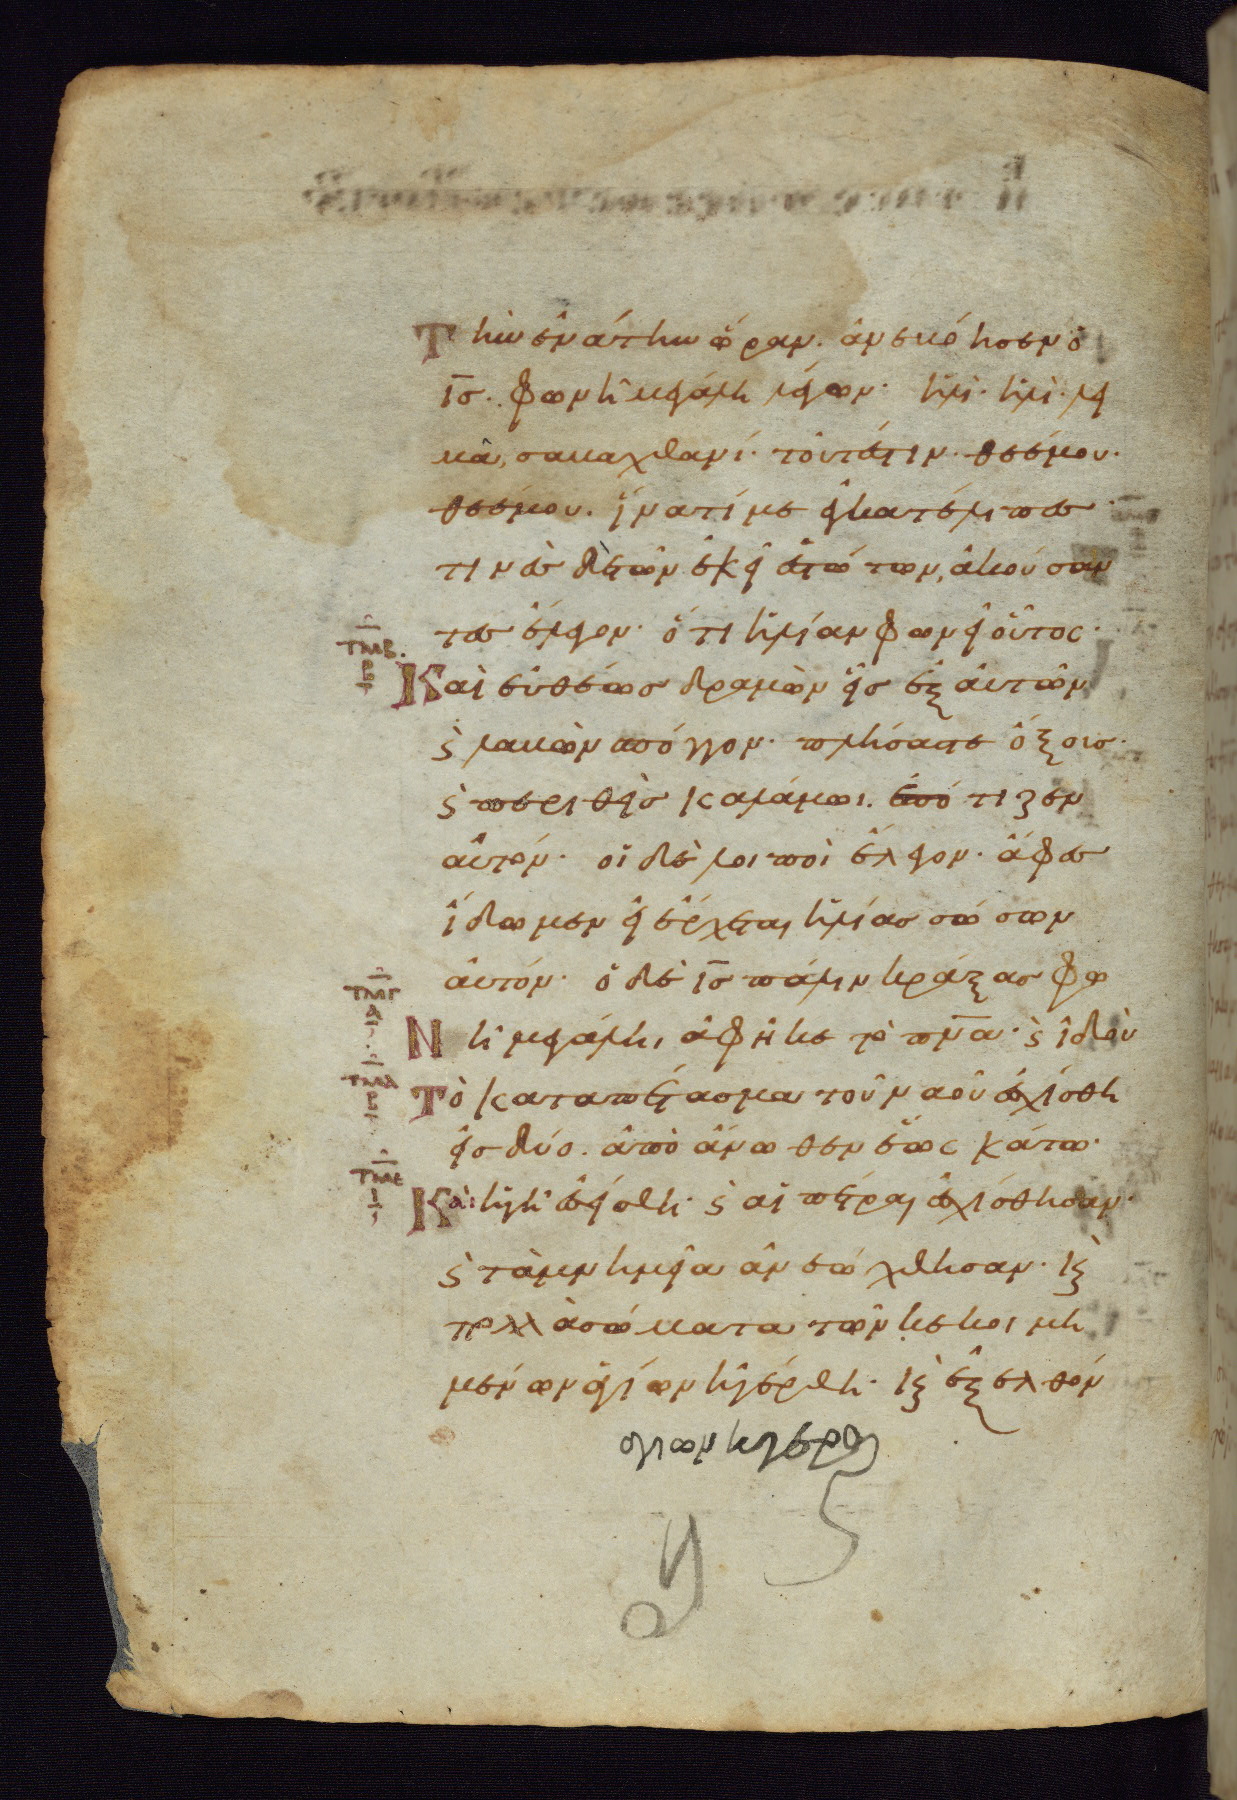 Τὴν ἐνάτην ὥραν. ἀνεβόησεν ὁ
ισ. φωνῆ μεγάλη λέγων. ἠλὶ. ἠλὶ. λι
μᾶ, σαβαχθανί. τοῦτέστιν. θεέμου.
θεέμου. ἵνατί με ἐγκατέλιπεσ.
τινὲσ δὲ τῶν ἐκεῖ ἑστώτων, ἀκούσαν
τεσ ἔλεγον. ὅτι ἠλίαν φωνεῖ οὗτος.
τμβ
β
Καὶ εὐθέωσ δραμὼν εἷσ ἐξ αὐτῶν
ϗ λαβὼν σπόγγον. πλήσαστε ὄξουσ.
ϗ περιθεὶσ καλάμωι. ἐπότιζεν
αὐτόν. οἱ δὲ λοιποὶ ἔλεγον. ἄφεσ
ἴδωμεν εἰ ἔρχεται ἠλίασ σώσων
αὐτόν. ὁ δὲ ισ πάλιν κράξασ φω
τμγ
α
Νῆ μεγάλη, ἀφῆκε τὸ πνα. ϗ ἰδοὺ
τμδ
β
Τὸ καταπέτασμα τοῦ ναοῦ ἐσχίσθη
εἰσ δύο. ἀπὸ ἄνωθεν ἕως κάτω.
τμε
ι
Καὶ ἡ γῆ ἐσείσθη. ϗ αἱ πέτραι ἐσχίσθησαν.
ϗ τὰ μνημεῖα ἀνεώχθησαν. ϗ
πολλὰ σώματα τῶν κεκοιμη
μένων ἁγίων ἠγέρθη. ϗ ἐξελθόν